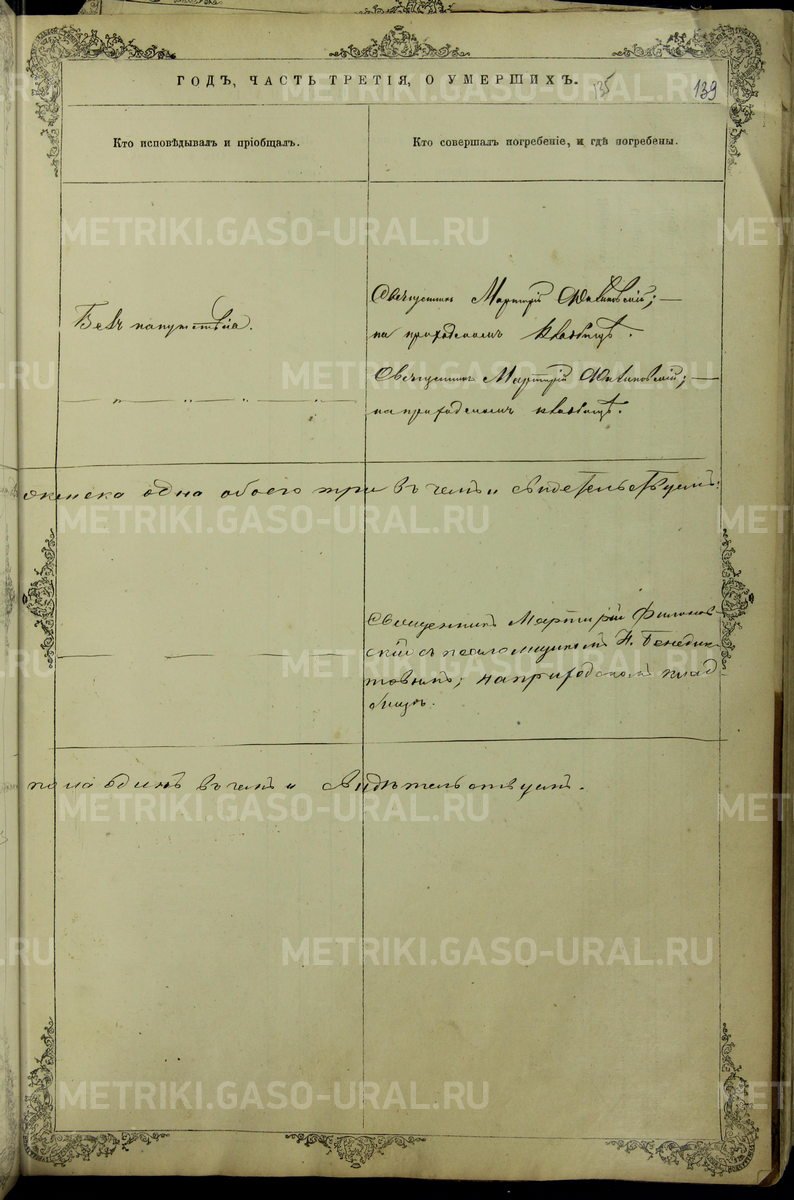 ГОДЪ, ЧАСТЬ ТРЕТІЯ, О УМЕРШИХЪ.
135
139
Кто исповѣдывалъ и пріобщалъ.
Кто совершалъ погребеніе, и гдѣ погребены.
Безъ напутствія.
Священникъ Мартирій Филиновскій;
на приходскомъ кладбищѣ.
Священникъ Мартирій Филиновскій;
на приходскомъ кладбищѣ.
женска одна обоего три въ чемъ и свидетельствуемъ:
Священникъ Мартирій Филинов-
скій съ псаломщикомъ Бенедик-
товымъ; на приходскомъ клад
бищѣ.
пола одинъ въ чемъ и свидѣтельствуемъ.
METRIKI.GASO-URAL.RU